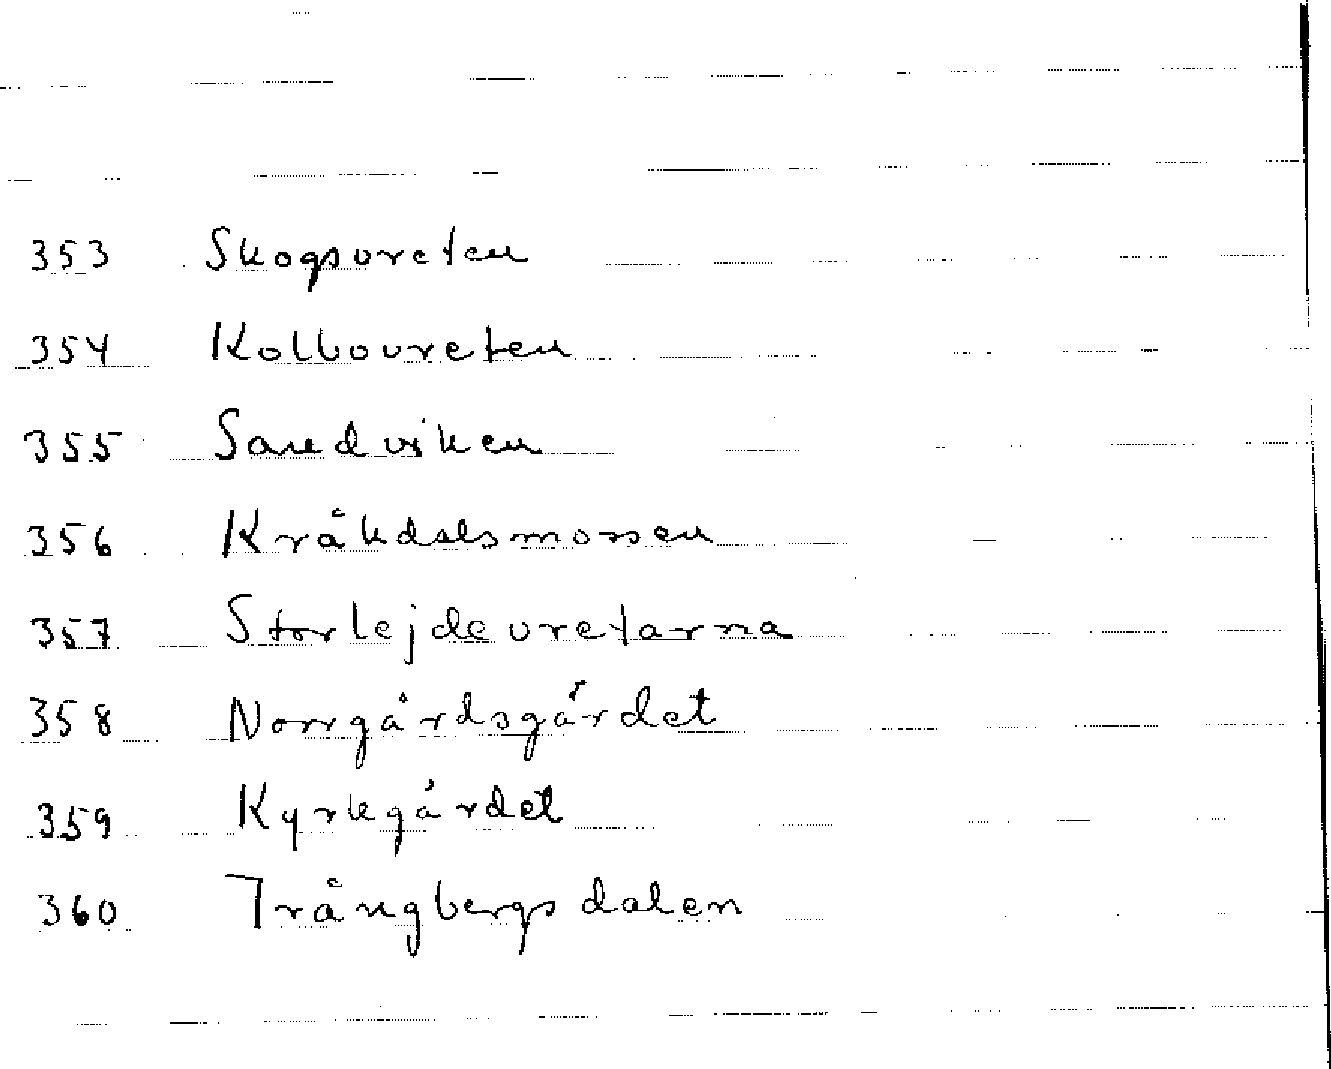 353 Skogsvreten
354 Kolbovreten
355 Sandviken
356 Kråkdalsmossen
357 Storlejdevretarna
358 Norrgårdsgärdet
359 Kyrkgärdet
360 Trångbergsdalen